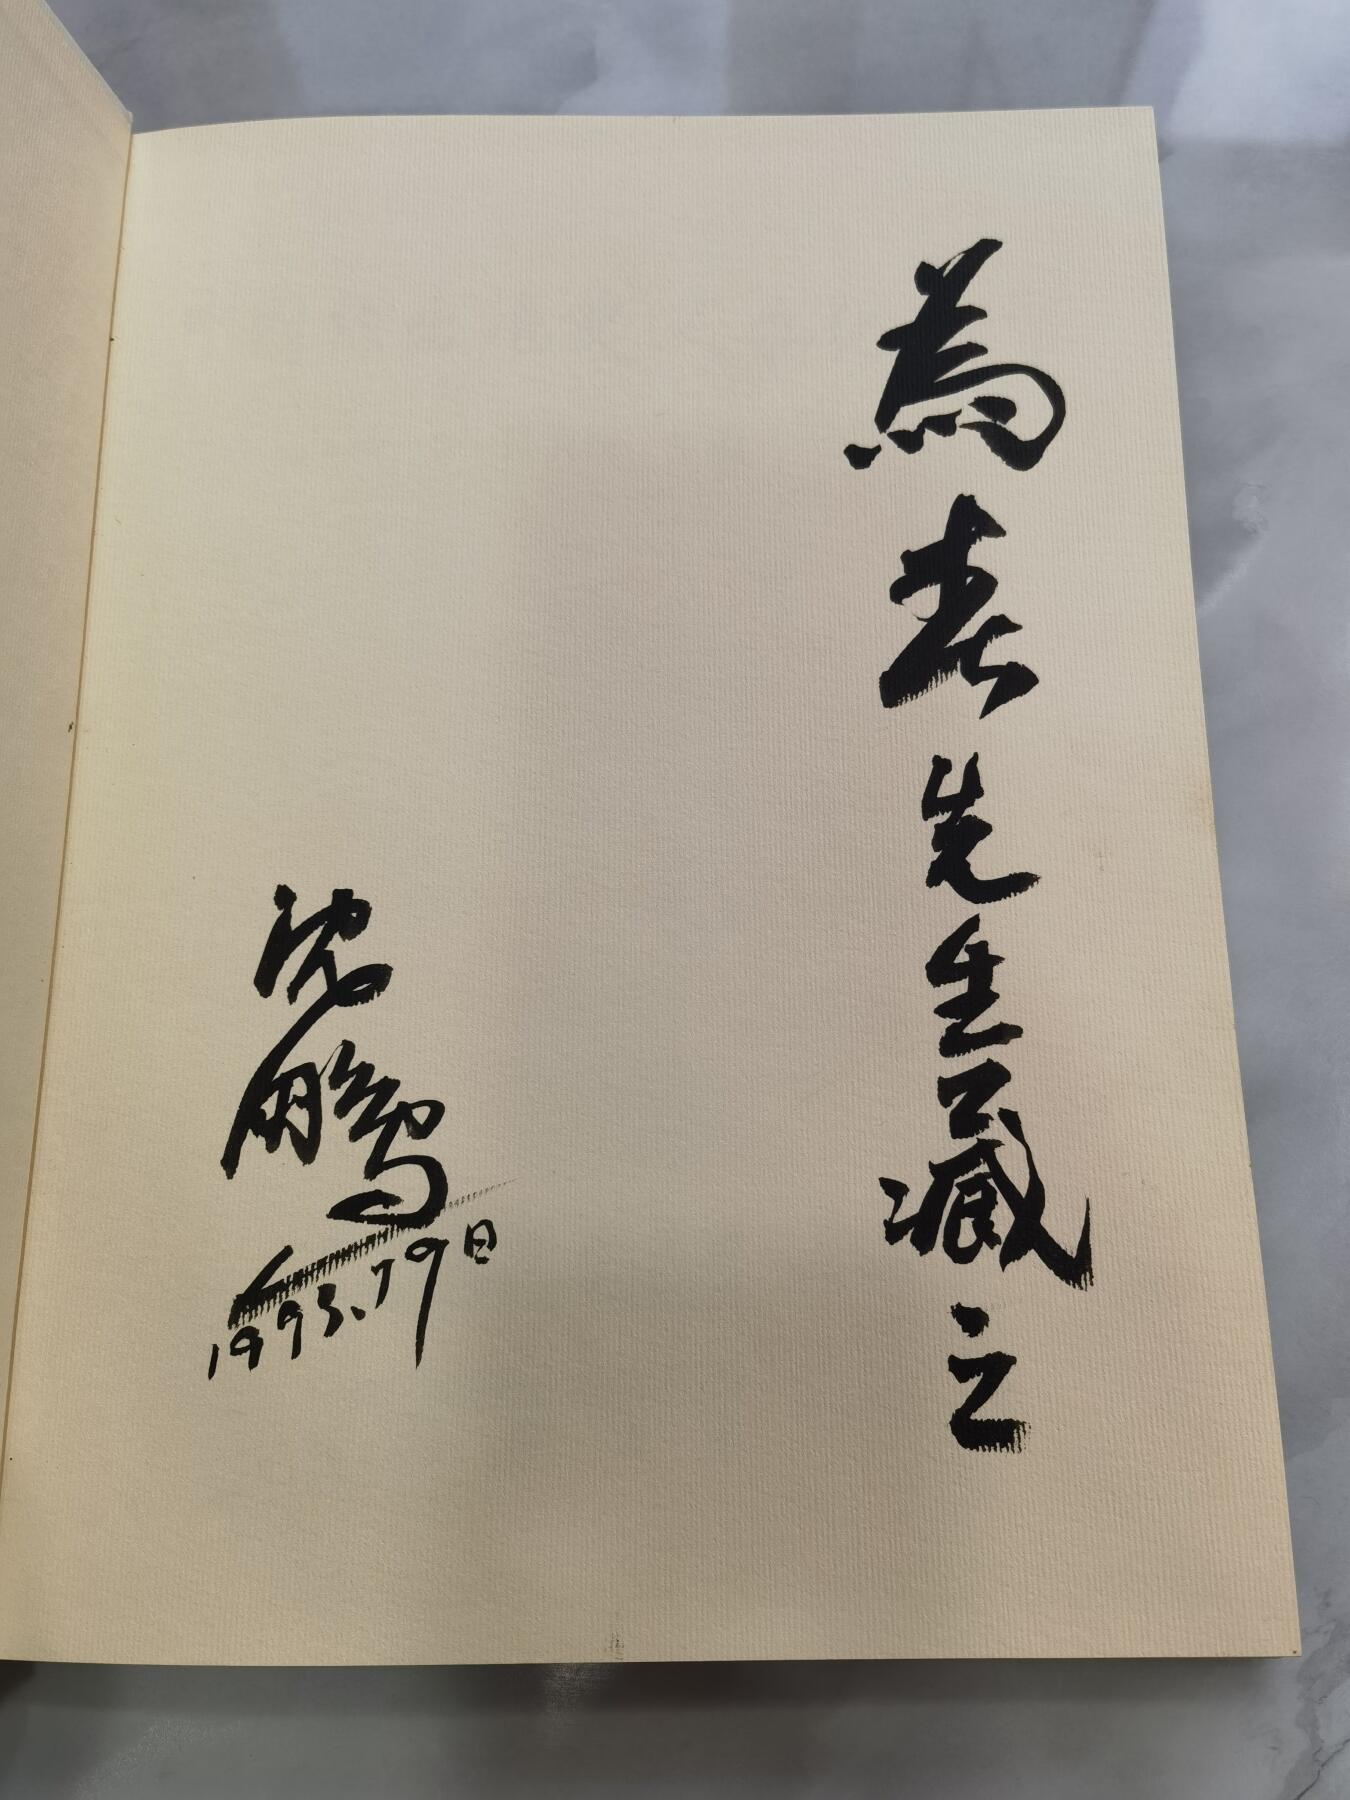 為春先生正藏之
沈鹏
1993.7.9日